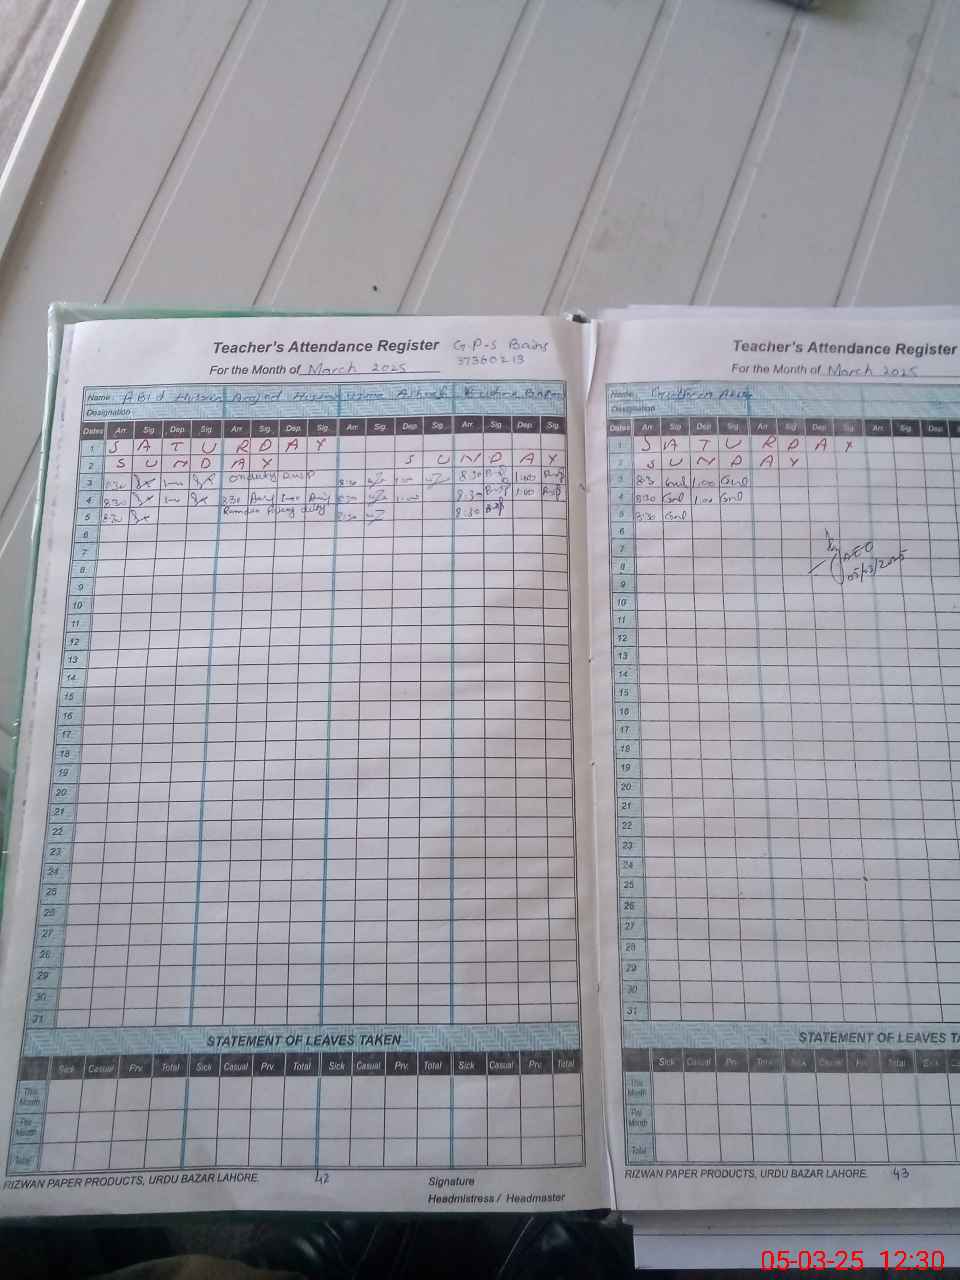 Teacher's Attendance Register G.P.S Bains
37360213
For the Month of March 2025
Name Abid Hussain Amjad Hussain
Designation
Dates Arr. Sig. Dep. Sig. Arr. Sig. Dep. Sig. Arr. Sig. Dep. Sig. Arr. Sig. Dep. Sig.
1 S A T U R D A Y
2 S U N D A Y S U N D A Y
3 8:30 1:00 on duty 8:30 1:00 8:30 1:00
4 8:30 1:00 8:30 1:00 8:30 1:00 8:30 1:00
5 8:30 duty 8:30 8:30
6
7
8
9
10
11
12
13
14
15
16
17
18
19
20
21
22
23
24
25
26
27
28
29
30
31
STATEMENT OF LEAVES TAKEN
Sick Casual Prv. Total Sick Casual Prv. Total Sick Casual Prv. Total Sick Casual Prv. Total
This Month
Per Month
Total
RIZWAN PAPER PRODUCTS, URDU BAZAR LAHORE. 42
Signature
Headmistress / Headmaster
Teacher's Attendance Register
For the Month of March 2025
Name
Designation
Dates Arr. Sig. Dep. Sig. Arr. Sig. Dep. Sig. Arr. Sig. Dep.
1 S A T U R D A Y
2 S U N D A Y
3 8:30 Gul 1:00 Gul
4 8:30 Gul 1:00 Gul
5 8:30 Gul
6
7 AEO
8 05/03/2025
9
10
11
12
13
14
15
16
17
18
19
20
21
22
23
24
25
26
27
28
29
30
31
STATEMENT OF LEAVES TA
Sick Casual Prv. Total Sick Casual Prv. Total Sick
This Month
Per Month
Total
RIZWAN PAPER PRODUCTS, URDU BAZAR LAHORE. 43
05-03-25 12:30